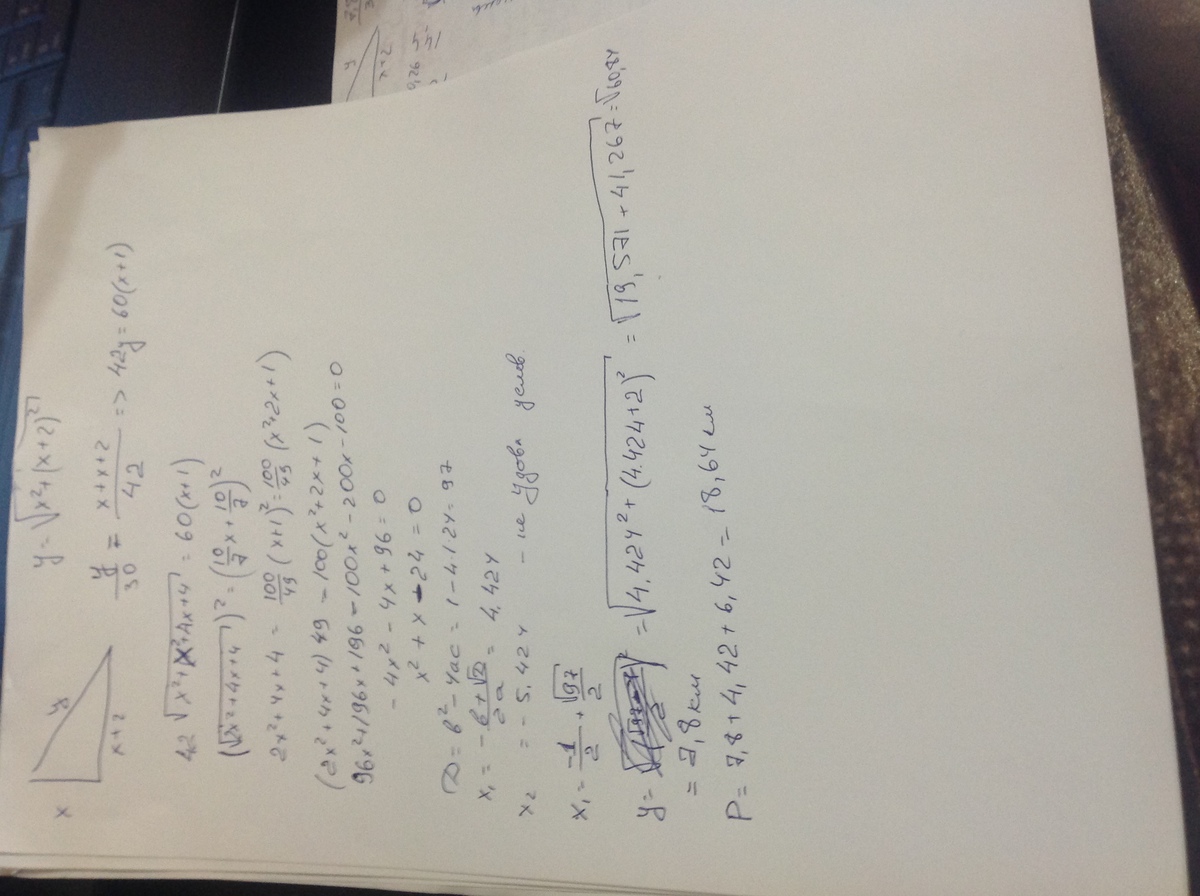 x
y
x+2
y = √(x²+(x+2)²)
y/30 = (x+x+2)/42 => 42y = 60(x+1)
42 √(x²+x²+4x+4) = 60(x+1)
(√(2x²+4x+4))² = (10/7 x + 10/7)²
2x²+4x+4 = 100/49 (x+1)² = 100/49 (x²+2x+1)
(2x²+4x+4)49 - 100(x²+2x+1)
96x²+196x+196-100x²-200x-100=0
-4x²-4x+96=0
x²+x-24=0
D = b²-4ac = 1-4.1.24=97
x₁ = -(b+√D)/2a = 4,424
x₂ = -5,424 - не удовл услов.
x₁ = -1/2 + √97/2
y = = √(4,424²+(4.424+2)²) = √(19,571+41,267) = √60,84
= 7,8 км
P = 7,8+4,42+6,42 = 18,64 км
y
x+2